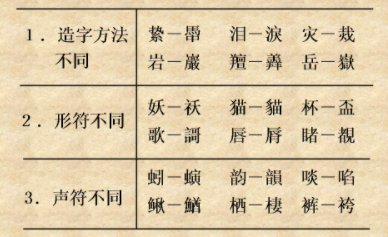 1．造字方法 絷－馽 泪－淚 灾－烖
不同 岩－巖 羶－羴 岳－嶽
妖－祅 猫－貓 杯－盃
2．形符不同
歌－謌 唇－脣 睹－覩
蚓－螾 韵－韻 啖－啗
3．声符不同
鳅－鰌 栖－棲 裤－袴